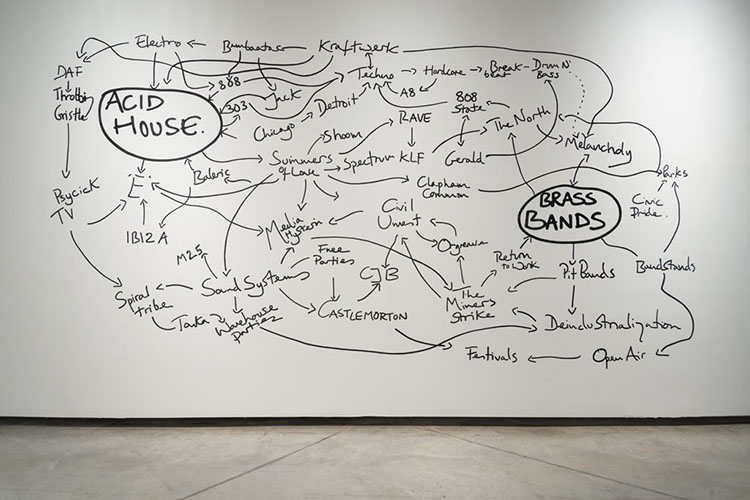 Electro
Bambaataa
Kraftwerk
DAF
808
Techno
Hardcore
Break
beat
Drum N'
Bass
Throbbing
Gristle
ACID
HOUSE.
303
Jack
A8
808
State
Chicago
Detroit
RAVE
The North
Shoom
Melancholy
Summers
of Love
Spectrum
KLF
Gerald
Balearic
Clapham
Common
Parks
Psychick
TV
E
BRASS
BANDS
Civic
Pride.
IBIZA
Media
Hysteria
Civil
Unrest
Orgreave
M25
Free
Parties
CJB
Return
to Work
Pit Bands
Bandstands
Spiral
tribe
Sound Systems
The
Miners
Strike
Tonka
Warehouse
parties
CASTLEMORTON
Deindustrialization
Festivals
Open Air